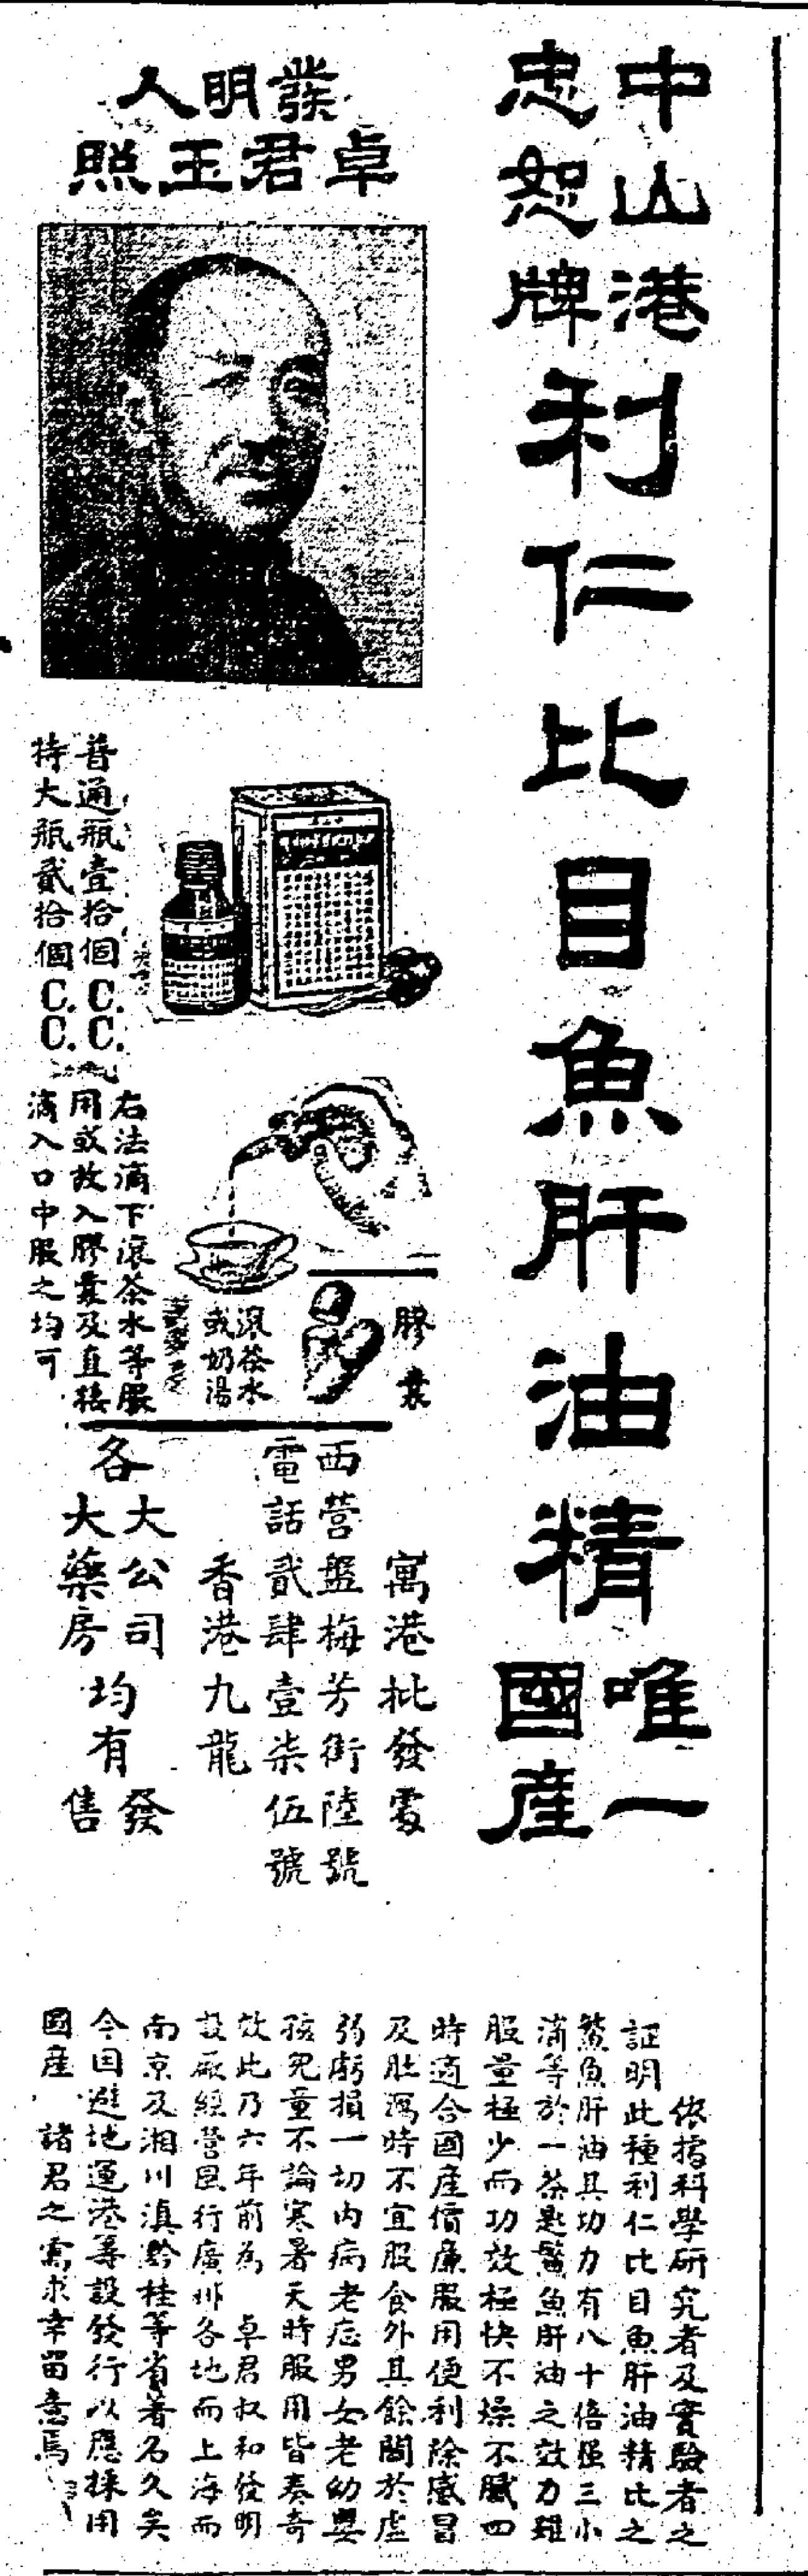 中山港
忠恕牌
利仁比目魚肝油精
唯一
國產
發明人
卓君玉照
普通瓶壹拾個C.C.
特大瓶貳拾個C.C.
膠囊
滾茶水
或奶湯
右法滴下滾茶水等服
用或放入膠囊及直接
滴入口中服之均可
寓港批發處
西營盤梅芳街陸號
電話貳肆壹柒伍號
香港九龍
各
大公司
大藥房
均有
發售
依據科學研究者及實驗者之
証明此種利仁比目魚肝油精比之
鱉魚肝油其功力有八十倍強三小
滴等於一茶匙鱉魚肝油之效力雖
服量極少而功效極快不燥不膩四
時適合國產價廉服用便利除感冒
及肚瀉時不宜服食外其餘關於虛
弱虧損一切內病老忘男女老幼嬰
孩兒童不論寒暑天時服用皆奏奇
效此乃六年前為 卓君叔和發明
設厰經營風行廣州各地而上海而
南京及湘川滇黔桂等省著名久矣
今因避地運港籌設發行以應採用
國產 諸君之需求幸留意焉